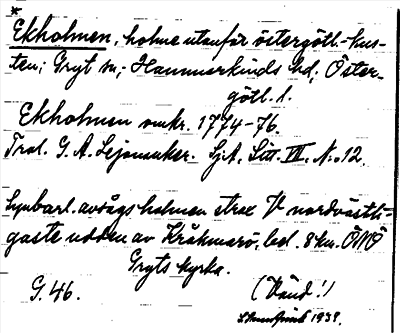 *
Ekholmen, holme utanför östergötl.-kus-
ten; Gryt sn; Hammarkinds hd; Öster-
götl. l.
Ekholmen omkr. 1774-76.
Tral. G. A. Lejonanker. SjA. Litt. III. No 12.
Synbarl. avsågs holmen strax V nordvästli-
gaste udden av Kråkmarö, bel. 8 km. ÖNÖ
Gryts kyrka.
G. 46. (Vänd!)
1938.